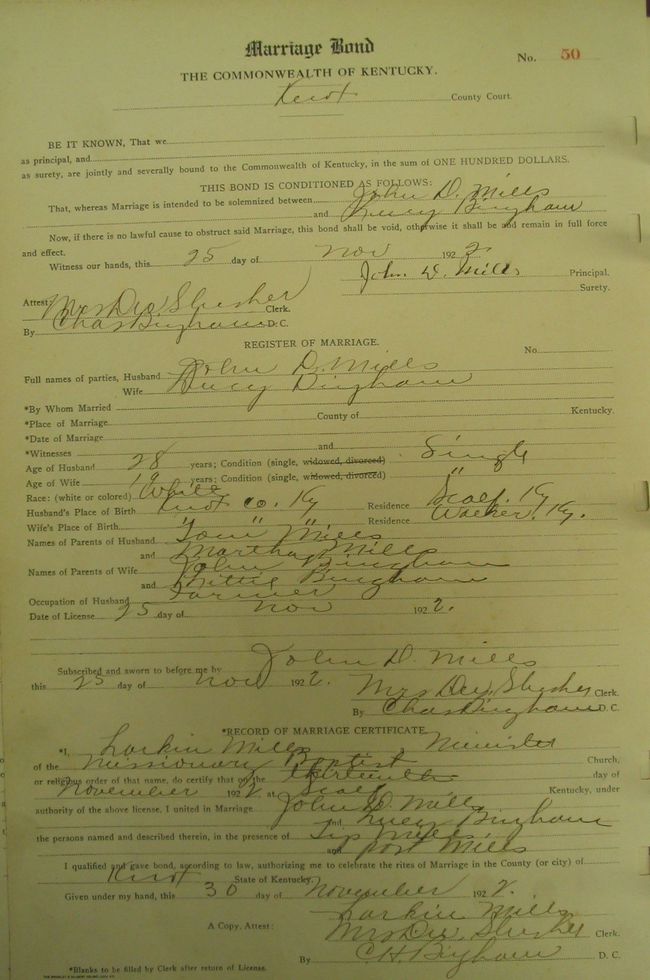 Marriage Bond
No. 50
THE COMMONWEALTH OF KENTUCKY.
Knox County Court.
BE IT KNOWN, That we
as principal, and
as surety, are jointly and severally bound to the Commonwealth of Kentucky, in the sum of ONE HUNDRED DOLLARS.
THIS BOND IS CONDITIONED AS FOLLOWS:
That, whereas Marriage is intended to be solemnized between John D. Mills
and Lucy Bingham
Now, if there is no lawful cause to obstruct said Marriage, this bond shall be void, otherwise it shall be and remain in full force
and effect.
Witness our hands, this 25 day of Nov 1922
John D. Mills Principal.
Surety.
Attest: Mrs Dee Slusher Clerk.
By Chas Bingham D. C.
REGISTER OF MARRIAGE.
No.
Full names of parties, Husband John D. Mills
Wife Lucy Bingham
*By Whom Married
*Place of Marriage County of Kentucky.
*Date of Marriage
*Witnesses and
Age of Husband 28 years; Condition (single, widowed, divorced) Single
Age of Wife 19 years; Condition (single, widowed, divorced) "
Race: (white or colored) White
Husband's Place of Birth Knox Co. Ky Residence Scalf. Ky
Wife's Place of Birth " " " Residence Walker. Ky.
Names of Parents of Husband Tom Mills
and Martha Mills
Names of Parents of Wife John Bingham
and Bingham
Occupation of Husband Farmer
Date of License 25 day of Nov 1922.
Subscribed and sworn to before me by John D. Mills
this 25 day of Nov 1922. Mrs Dee Slusher Clerk.
By Chas Bingham D. C.
*RECORD OF MARRIAGE CERTIFICATE
*I, Larkin Mills Minister
of the Missionary Baptist Church,
or religious order of that name, do certify that on the thirteenth day of
November 1922 at Scalf Kentucky, under
authority of the above license, I united in Marriage John D Mills
and Lucy Bingham
the persons named and described therein, in the presence of Mills
and Mills
I qualified and gave bond, according to law, authorizing me to celebrate the rites of Marriage in the County (or city) of
Knox State of Kentucky.
Given under my hand, this 30 day of November 1922.
Larkin Mills
A Copy, Attest: Mrs Dee Slusher Clerk.
By C.H. Bingham D. C.
*Blanks to be filled by Clerk after return of License.